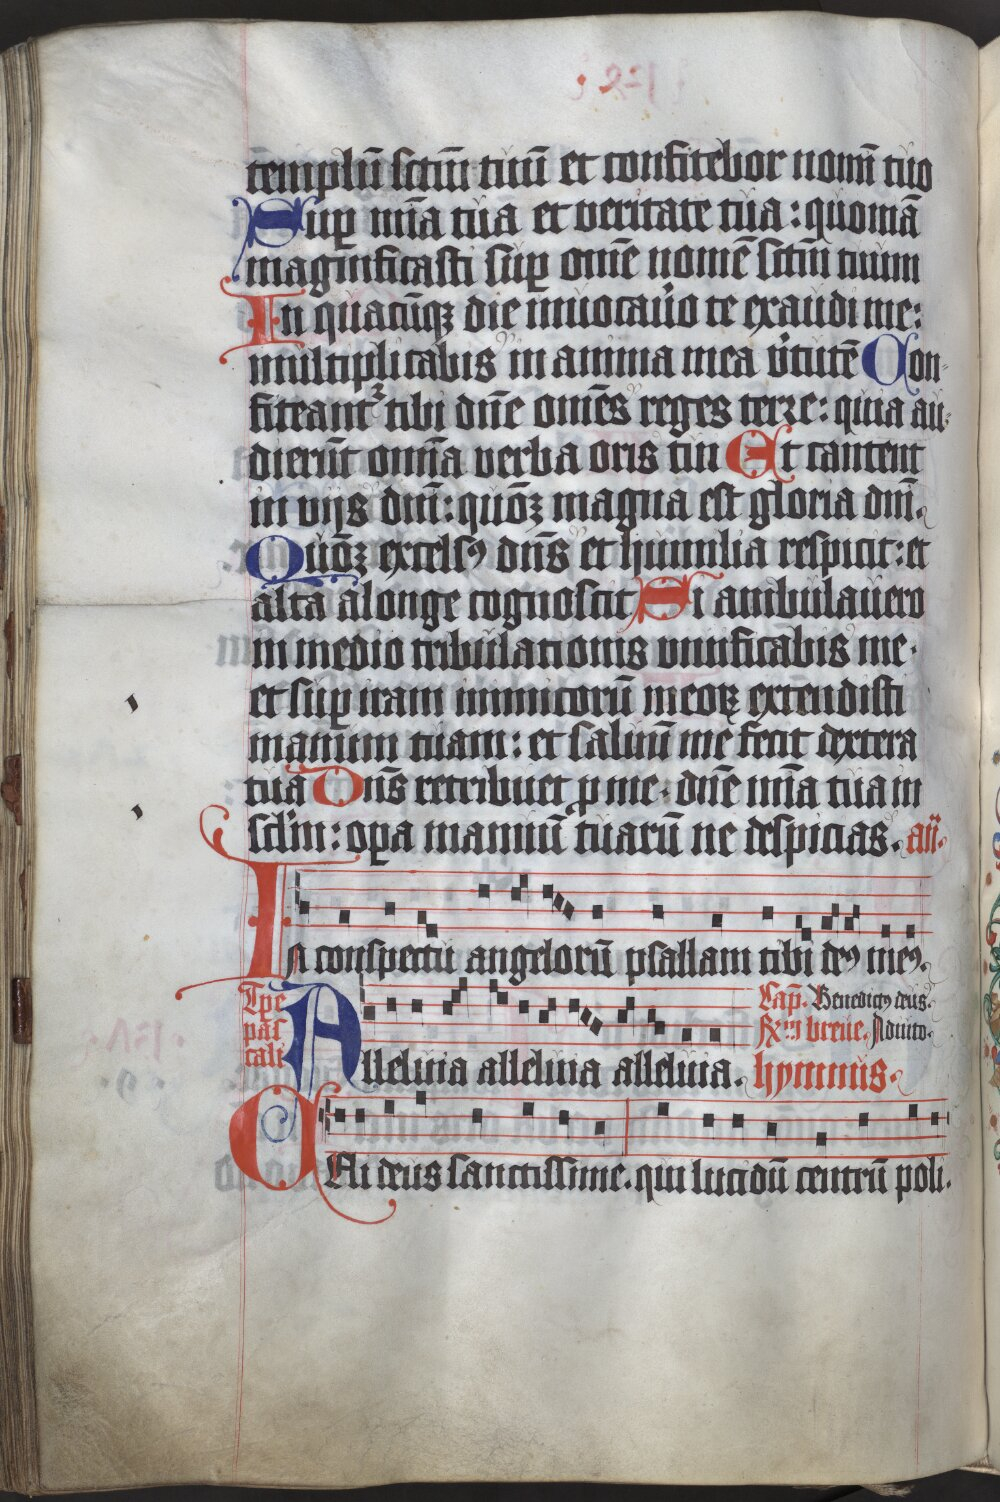 templū sctm̄ tuū et confitebor nomī tuo
Suꝑ mīa tua et veritate tua: quoniā
magnificasti suꝑ om̄e nomē sctm̄ tuum
In quacūqꝫ die inuocauero te exaudi me:
multiplicabis in anima mea v̓tutē Con
fiteantᷣ tibi dn̄e om̄es reges terre: quia au
dierūt om̄ia verba oris tui Et cantent
in vijs dn̄i: quōꝫ magna est gloria dn̄i.
Quōꝫ excelsꝰ dn̄s et humilia respicit: et
alta alonge cognoscit Si ambulauero
in medio tribulationis viuificabis me.
et suꝑ iram inimicorū meoꝝ extendisti
manum tuam: et saluū me fecit dextera
tua Dn̄s retribuet ꝓ me. dn̄e mīa tua in
sclm̄: opa manuū tuarū ne despicias. añ.
In conspectu angelorū psallam tibi deꝰ meꝰ.
Tpe
pas
cali
Cap. Benedictꝰ deus.
breue. Adiuto.
Alleluia alleluia alleluia. hymnus.
Celi deus sanctissime. qui lucidū centrū poli.